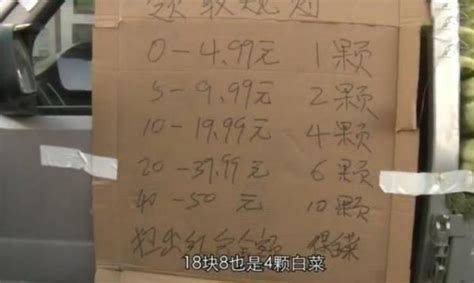 领取规则
0-4.99元 1颗
5-9.99元 2颗
10-19.99元 4颗
20-39.99元 6颗
40-50元 10颗
18块8也是4颗白菜